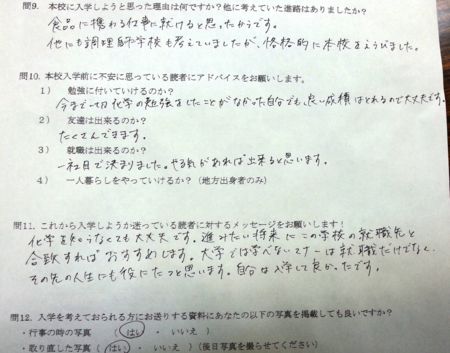 問9. 本校に入学しようと思った理由は何ですか？他に考えていた進路はありましたか？
食品に携わる仕事に就けると思ったからです。
他にも調理師学校も考えていましたが、格格的に本校をえらびました。
問10. 本校入学前に不安に思っている読者にアドバイスをお願いします。
1） 勉強に付いていけるのか？
今まで一切化学の勉強をしたことがなかった自分でも、良い成績はとれるので大丈夫です。
2） 友達は出来るのか？
たくさんできます。
3） 就職は出来るのか？
一社目で決まりました。やる気があれば出来ると思います。
4） 一人暮らしをやっていけるか？（地方出身者のみ）
問11. これから入学しようか迷っている読者に対するメッセージをお願いします！
化学を知らなくても大丈夫です。進みたい将来にこの学校の就職先と
合致すればおすすめします。大学では学べないマナーは就職だけでなく、
その先の人生にも役にたつと思います。自分は入学して良かったです。
問12. 入学を考えておられる方にお送りする資料にあなたの以下の写真を掲載しても良いですか？
・行事の時の写真 （はい ・ いいえ ）
・取り直した写真 （はい ・ いいえ ）（後日写真を撮らせてください）